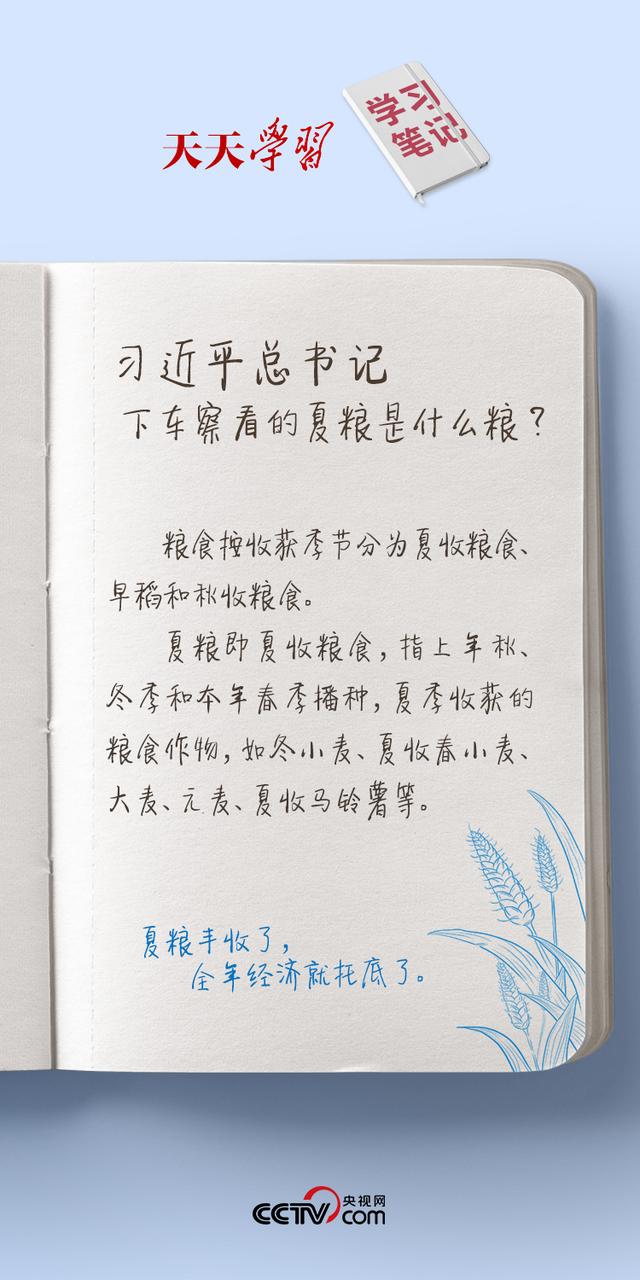 天天學習
学习
笔记
习近平总书记
下车察看的夏粮是什么粮？
粮食按收获季节分为夏收粮食、
早稻和秋收粮食。
夏粮即夏收粮食，指上年秋、
冬季和本年春季播种，夏季收获的
粮食作物，如冬小麦、夏收春小麦、
大麦、元麦、夏收马铃薯等。
夏粮丰收了，
全年经济就托底了。
CCTV 央视网
com